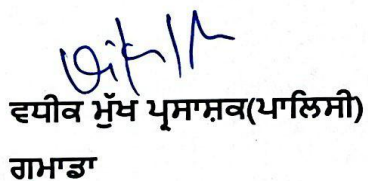 ਵਧੀਕ ਮੁੱਖ ਪ੍ਰਸਾਸ਼ਕ(ਪਾਲਿਸੀ)
ਗਮਾਡਾ